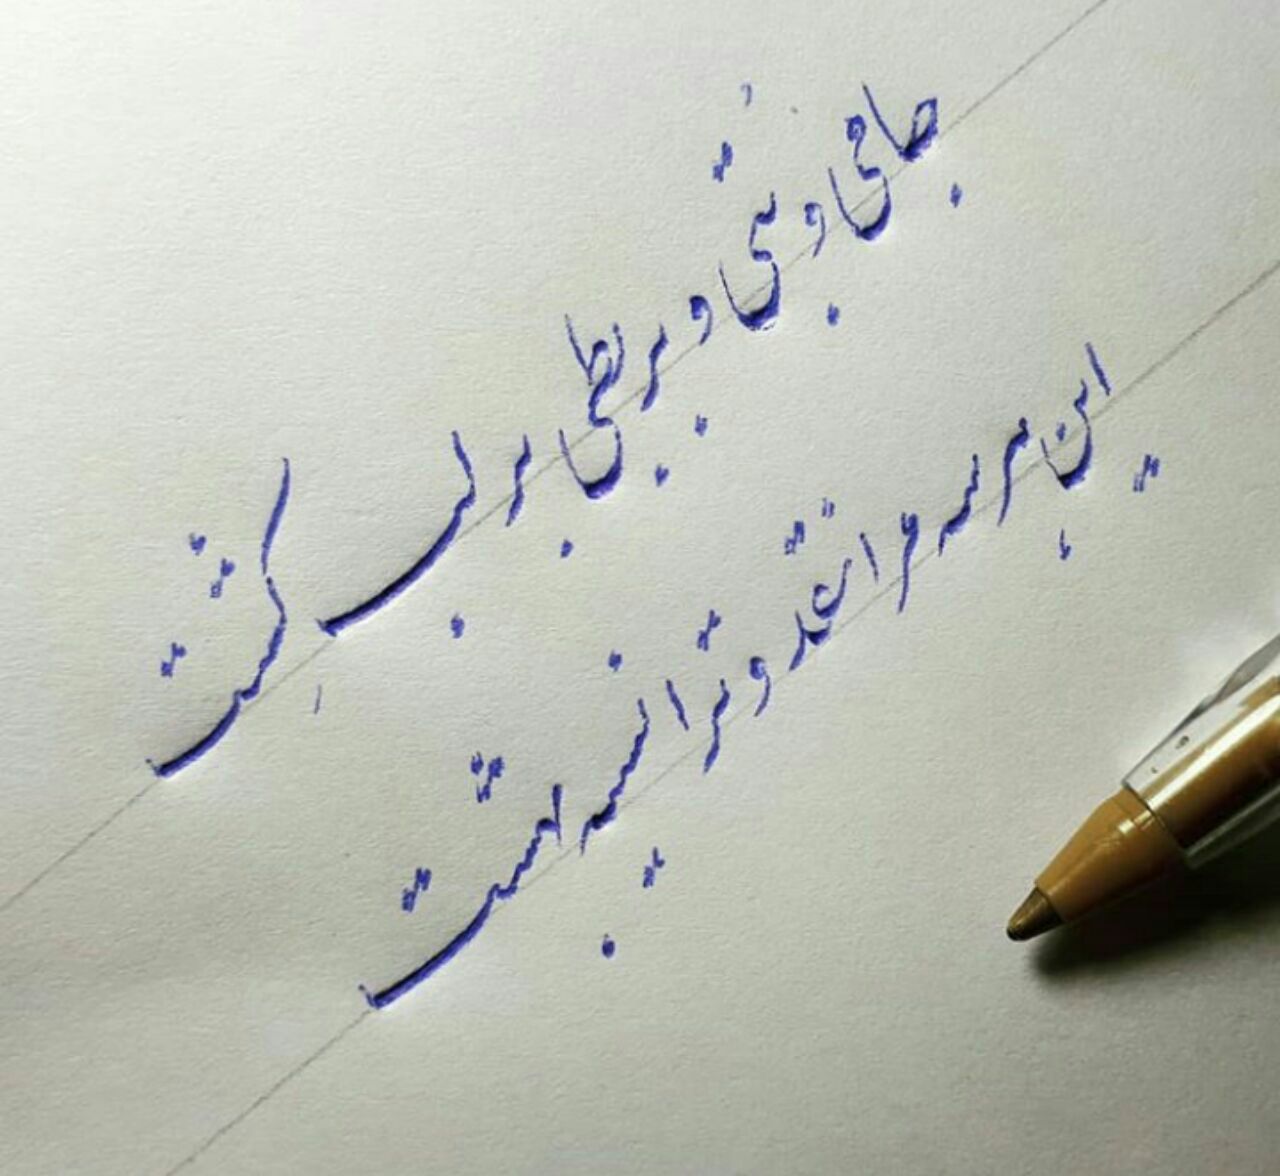 جامی و بتی و بربطی بر لب کشت
این هر سه مرا نقد و ترا نسیه بهشت